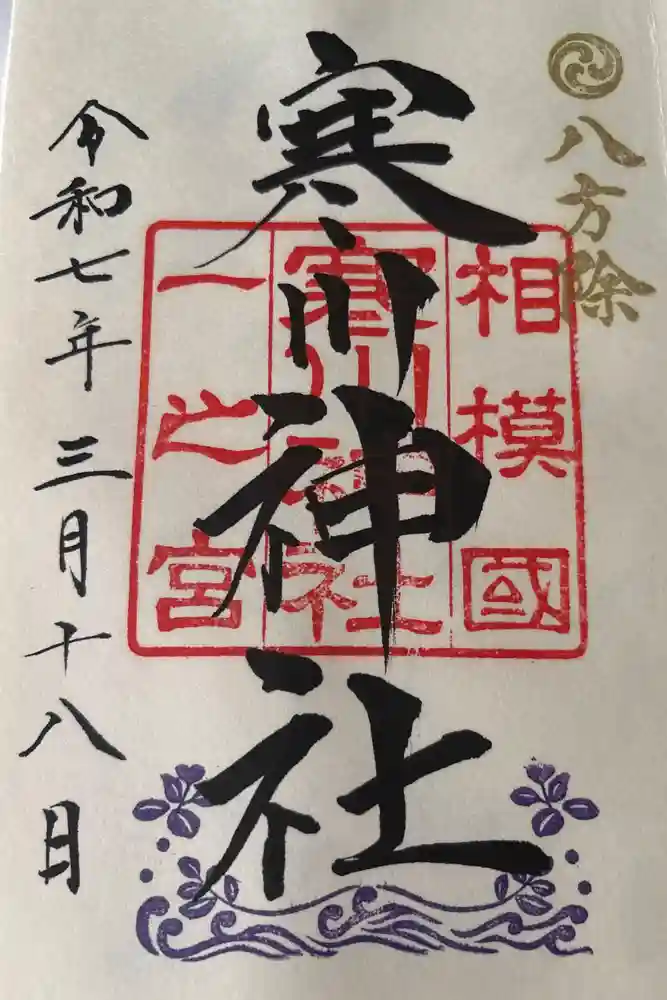 八方除
寒川神社
相模國
寒川神社
一之宮
令和七年三月十八日